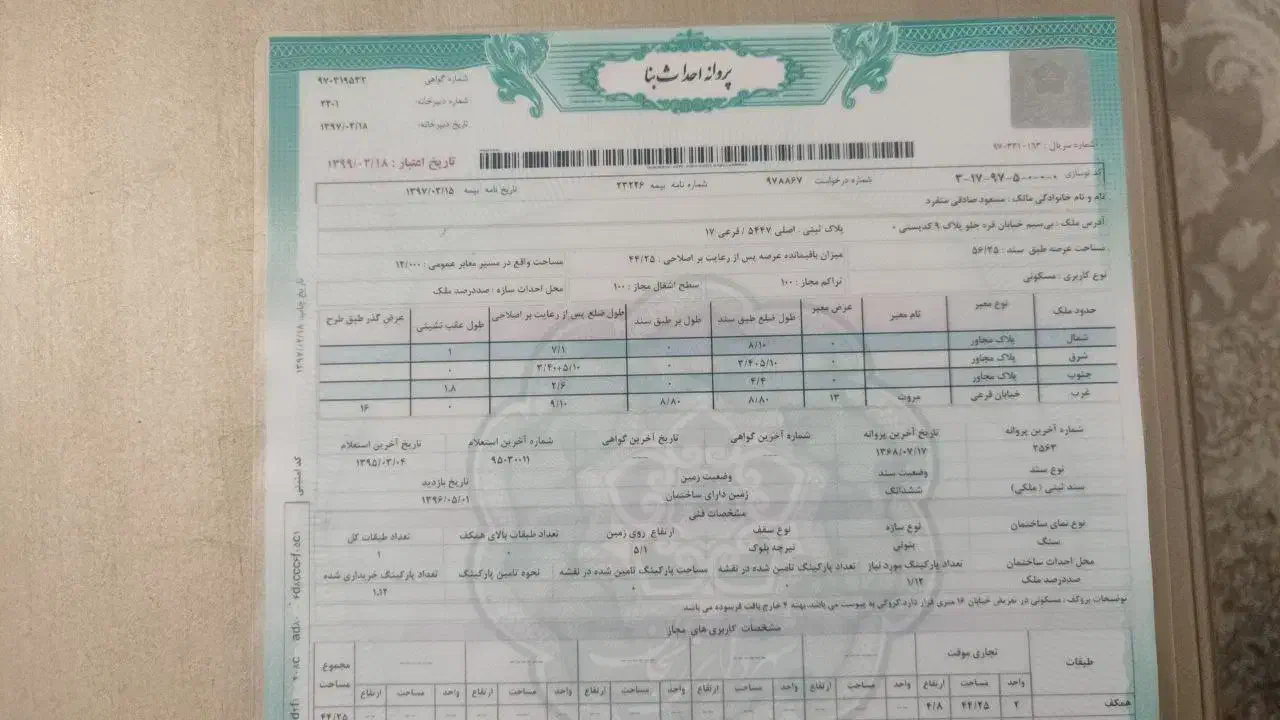 پروانه احداث بنا
شماره گواهی ۹۷۰۳۱۹۵۳۲
شماره دبیرخانه: ۳۳۰۱
تاریخ دبیرخانه: ۱۳۹۷/۰۳/۱۸
شماره سریال : ۹۷۰۳۳۱۰۱۶۳
تاریخ اعتبار : ۱۳۹۹/۰۳/۱۸
کد نوسازی ۳-۱۷-۹۷-۵-۰-۰-۰ شماره درخواست ۹۷۸۸۶۷ شماره نامه بیمه ۲۳۲۴۶ تاریخ نامه بیمه ۱۳۹۷/۰۳/۱۵
نام و نام خانوادگی مالک : مسعود صادقی منفرد
آدرس ملک : بی‌سیم خیابان قره جلو پلاک ۹ کدپستی ۰ پلاک ثبتی - اصلی ۵۴۴۷ / فرعی ۱۷
مساحت عرصه طبق سند : ۵۶/۲۵ میزان باقیمانده عرصه پس از رعایت بر اصلاحی : ۴۴/۲۵ مساحت واقع در مسیر معابر عمومی : ۱۲/۰۰۰
نوع کاربری : مسکونی تراکم مجاز : ۱۰۰ سطح اشغال مجاز : ۱۰۰ محل احداث سازه : صددرصد ملک
حدود ملک نوع معبر نام معبر عرض معبر طول ضلع طبق سند طول بر طبق سند طول ضلع پس از رعایت بر اصلاحی طول عقب نشینی عرض گذر طبق طرح
شمال پلاک مجاور ۰ ۸/۱۰ ۰ ۷/۱ ۱
شرق پلاک مجاور ۰ ۳/۴۰۵/۱۰ ۰ ۳/۴۰۰۵/۱۰ ۰
جنوب پلاک مجاور ۰ ۴/۴ ۰ ۲/۶ ۱.۸
غرب خیابان فرعی مروت ۱۳ ۸/۸۰ ۸/۸۰ ۹/۱۰ ۰ ۱۶
شماره آخرین پروانه تاریخ آخرین پروانه شماره آخرین گواهی تاریخ آخرین گواهی شماره آخرین استعلام تاریخ آخرین استعلام
۲۵۶۳ ۱۳۶۸/۰۷/۱۷ ---- ---- ۹۵۰۳۰۰۱۱ ۱۳۹۵/۰۳/۰۴
نوع سند وضعیت سند وضعیت زمین تاریخ بازدید
سند ثبتی ( ملکی) ششدانگ زمین دارای ساختمان ۱۳۹۶/۰۵/۰۱
مشخصات فنی
نوع نمای ساختمان نوع سازه نوع سقف ارتفاع روی زمین تعداد طبقات بالای همکف تعداد طبقات کل
سنگ بتونی تیرچه بلوک ۵/۱ ۰ ۱
محل احداث ساختمان تعداد پارکینگ مورد نیاز تعداد پارکینگ تامین شده در نقشه مساحت پارکینگ تامین شده در نقشه نحوه تامین پارکینگ تعداد پارکینگ خریداری شده
صددرصد ملک ۱/۱۲ ۰ ۰ ۱.۱۲
توضیحات بروکف : مسکونی در تعریض خیابان ۱۶ متری قرار دارد.کروکی به پیوست می باشد. پهنه ۴ خارج بافت فرسوده می باشد.
مشخصات کاربری های مجاز
طبقات تجاری موقت ---- ---- ---- ---- ---- مجموع مساحت
واحد مساحت ارتفاع واحد مساحت ارتفاع واحد مساحت ارتفاع واحد مساحت ارتفاع واحد مساحت ارتفاع واحد مساحت ارتفاع
همکف ۲ ۴۴/۲۵ ۴/۸ ۴۴/۲۵
تاریخ چاپ: ۱۳۹۷/۰۳/۱۸
کد امنیتی